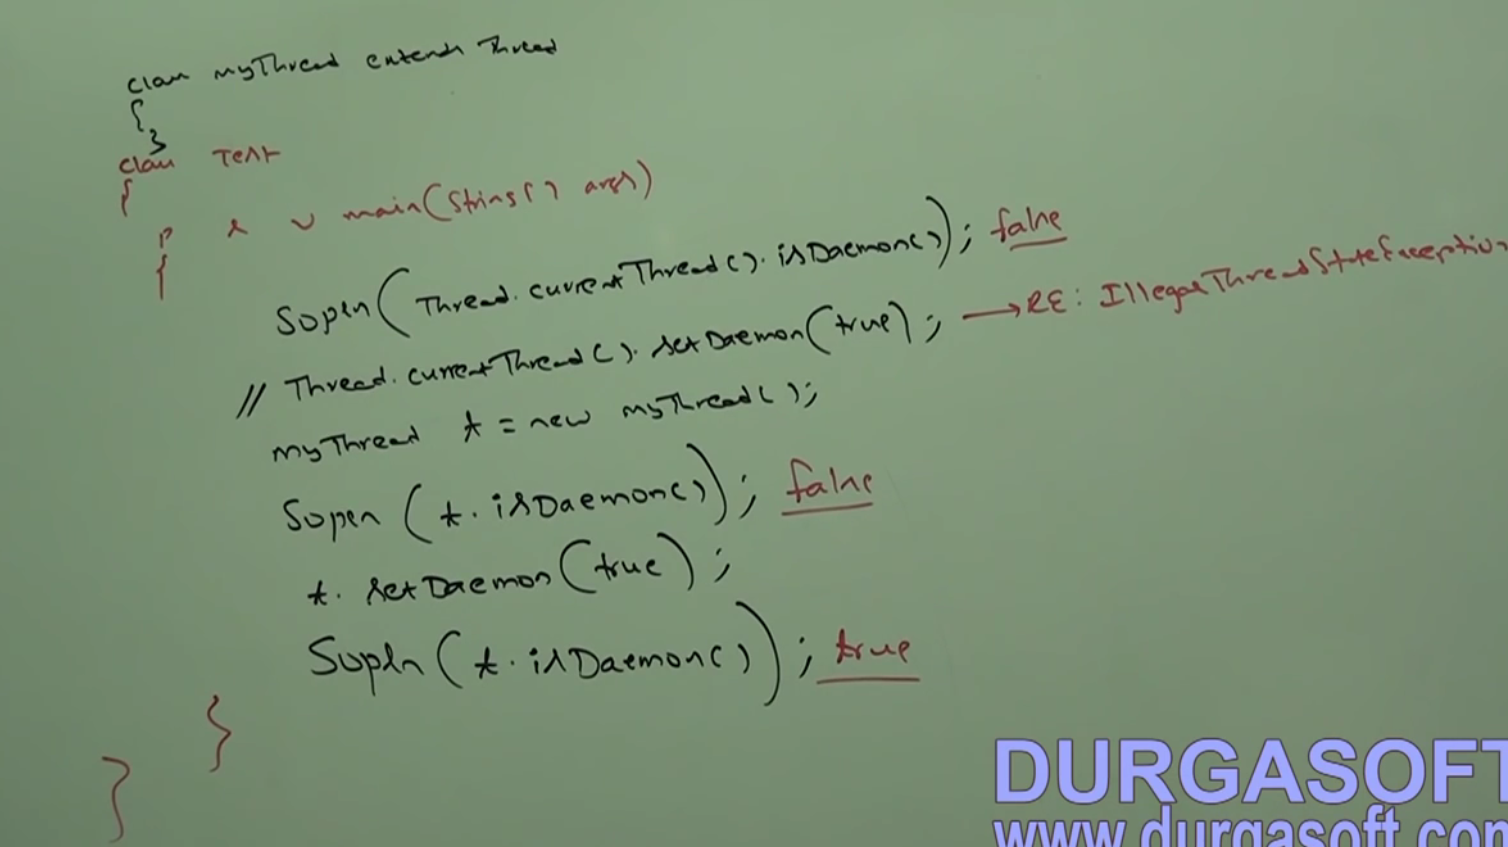 class myThread extends Thread
{
}
class Test
{
p s v main(String[] args)
{
Sopln(Thread.currentThread().isDaemon()); false
// Thread.currentThread().setDaemon(true); → RE: IllegalThreadStateException
myThread t = new myThread();
Sopln(t.isDaemon()); false
t.setDaemon(true);
Sopln(t.isDaemon()); true
}
}
DURGASOFT
www.durgasoft.com